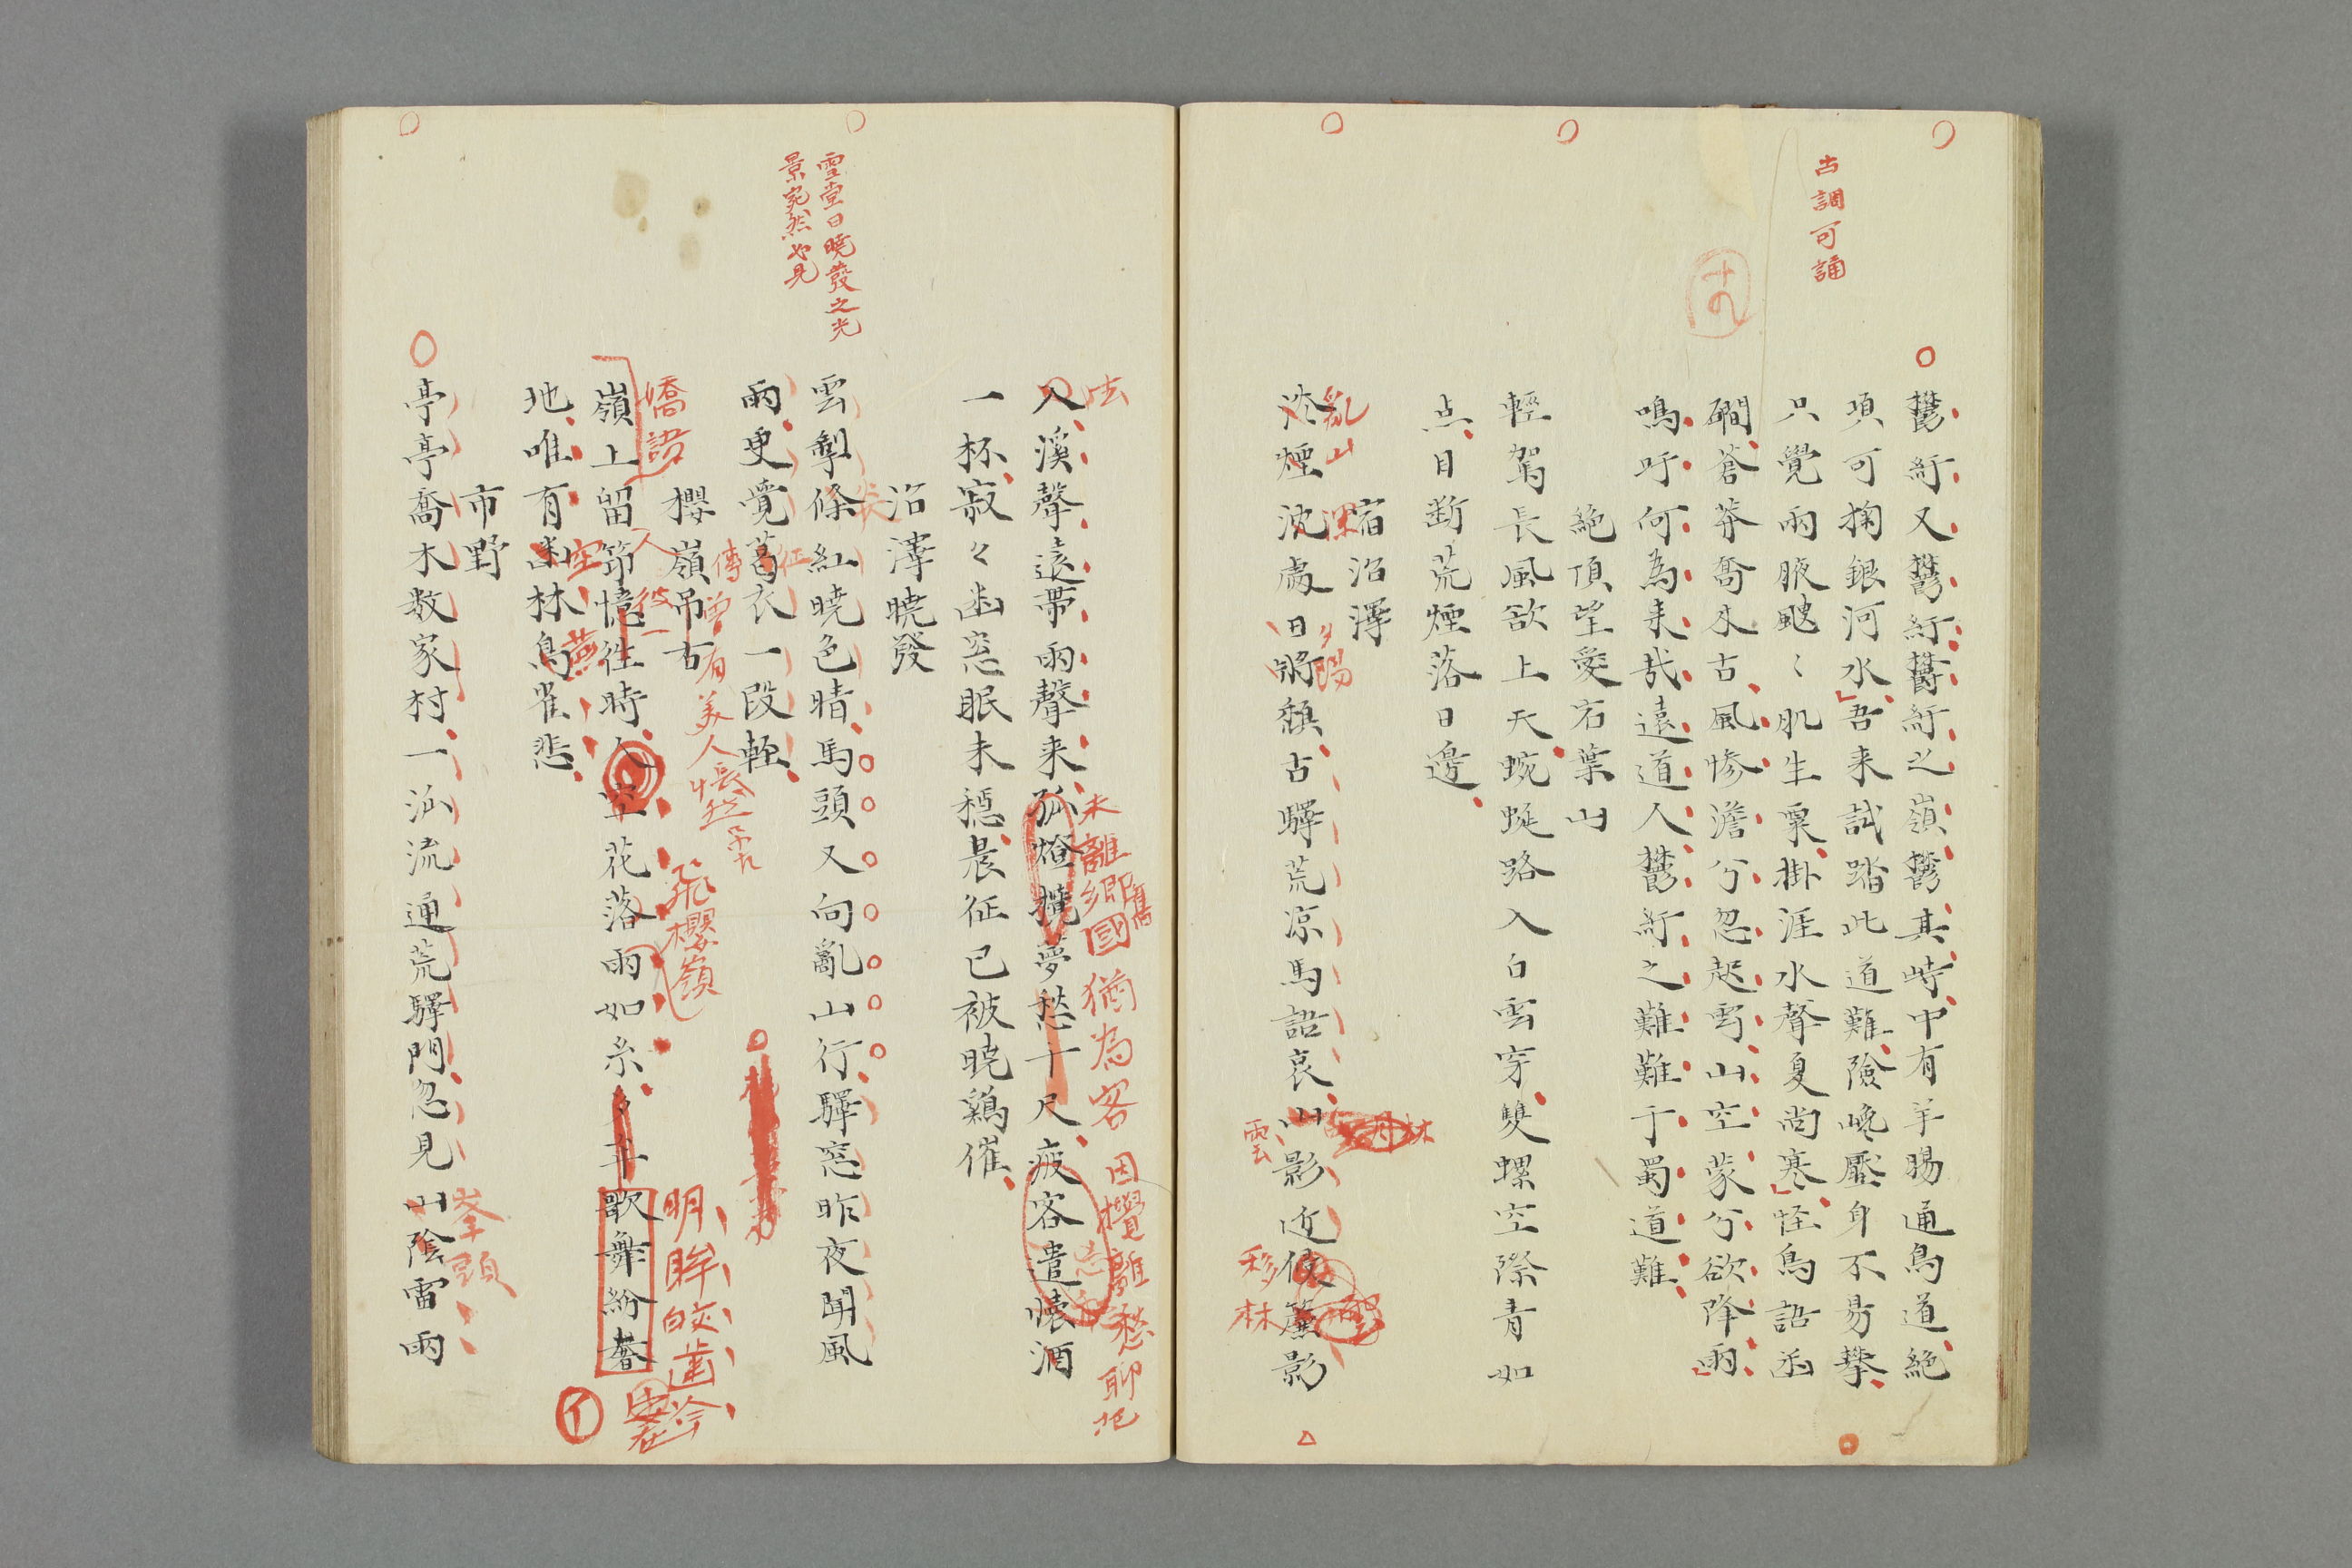 古調可誦
十九
鬱紆又鬱紆鬱紆之嶺鬱其峙中有羊腸通鳥道絶
項可掬銀河水吾来試踏此道難險巉壓身不易攀
只覺兩腋颼〻肌生粟掛涯水聲夏尚寒怪鳥語幽
磵蒼莽喬木古風惨澹兮忽起雩山空蒙兮欲降雨
鳴吁何為来哉遠道人鬱紆之難難于蜀道難
絶頂望愛宕葉山
輕駕長風欲上天蜿蜒路入白雲穿雙螺空際青如
点目断荒煙落日邊
宿沼澤
亂山深 夕陽
煙波處日將頽古驛荒凉馬語哀山影近侵簾影
林
雲
移林
去
入溪聲遠帶雨聲来孤燈攪夢愁千尺疲客遣懐酒
未離鄉國猶為客 因攪離愁聊把
舊
一杯寂々幽窓眠未穏晨征已被曉鷄催
沼澤曉發
雪堂曰曉發之光
景宛然如見
雲剩條紅曉色晴馬頭又向亂山行驛窓昨夜聞風
雨更覺葛衣一段輕
征
櫻嶺吊古
傳曽有美人
飛櫻嶺
嬌語
嶺上留笻憶往時人空花落雨如糸
歌舞紛奢
明眸皓齒今安在
地唯有幽林鳥雀悲
空
燕
市野
亭亭喬木数家村一派流通荒驛門忽見山陰雷雨
峯頭